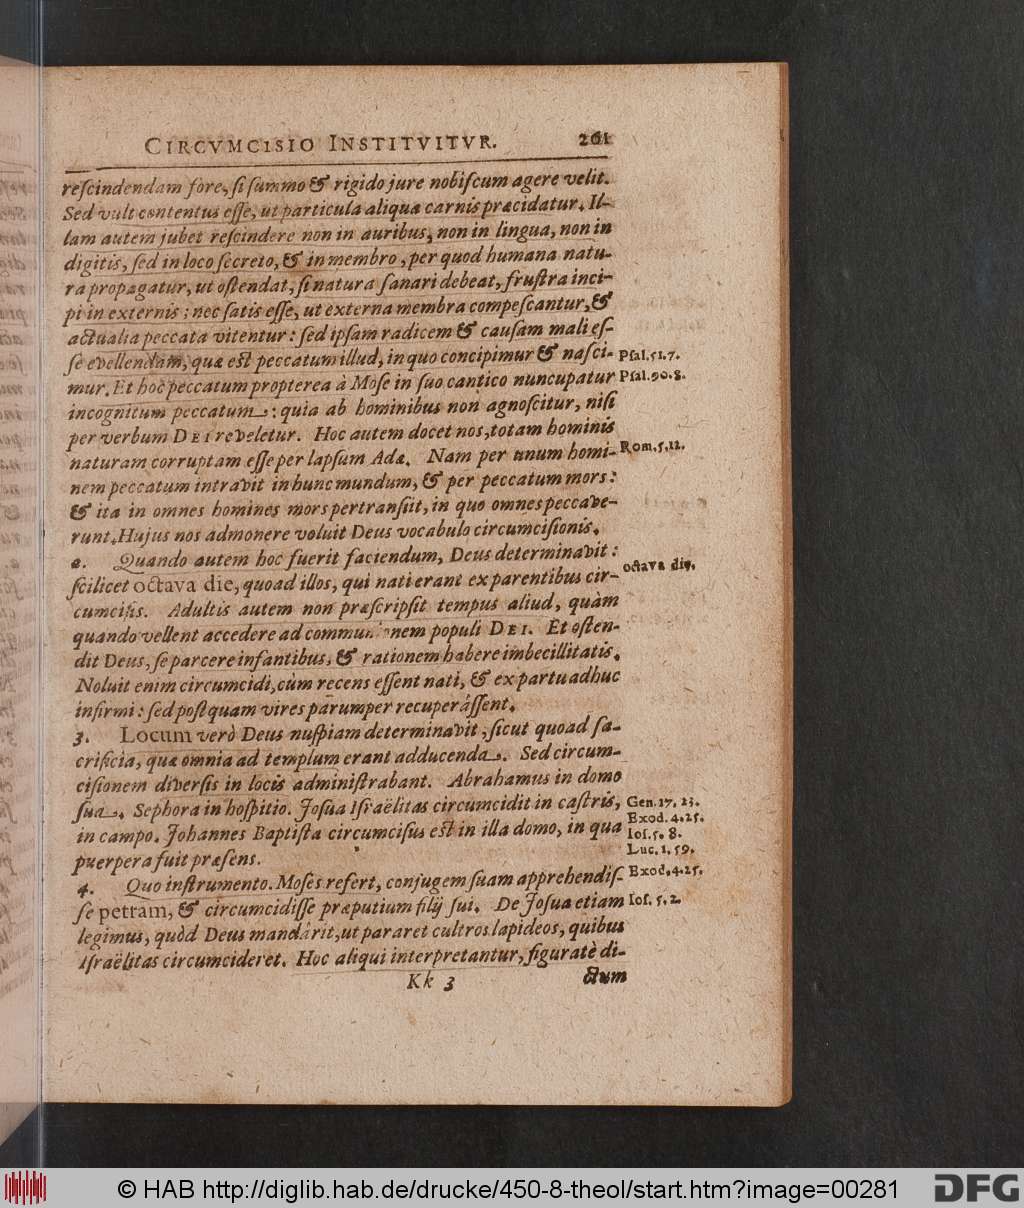 CIRCVMCISIO INSTITVITVR. 261
reſcindendam fore, ſi ſummo & rigido jure nobiſcum agere velit.
Sed vult contentus eſſe, ut particula aliqua carnis præcidatur. Il-
lam autem jubet reſcindere non in auribus, non in lingua, non in
digitis, ſed in loco ſecreto, & in membro, per quod humana natu-
ra propagatur, ut oſtendat, ſi natura ſanari debeat, fruſtra inci-
pi in externis; nec ſatis eſſe, ut externa membra compeſcantur, &
actualia peccata vitentur: ſed ipſam radicem & cauſam mali eſ-
ſe evellendam, quæ eſt peccatum illud, in quo concipimur & naſci- Pſal. 51. 7.
mur. Et hoc peccatum propterea à Moſe in ſuo cantico nuncupatur Pſal. 90. 8.
incognitum peccatum: quia ab hominibus non agnoſcitur, niſi
per verbum DEI reveletur. Hoc autem docet nos, totam hominis
naturam corruptam eſſe per lapſum Adæ. Nam per unum homi- Rom. 5. 12.
nem peccatum intravit in hunc mundum, & per peccatum mors:
& ita in omnes homines mors pertranſiit, in quo omnes peccave-
runt. Hujus nos admonere voluit Deus vocabulo circumciſionis.
2. Quando autem hoc fuerit faciendum, Deus determinavit:
ſcilicet octava die, quoad illos, qui nati erant ex parentibus cir- octava die.
cumciſis. Adultis autem non præſcripſit tempus aliud, quàm
quando vellent accedere ad communionem populi DEI. Et oſten-
dit Deus, ſe parcere infantibus, & rationem habere imbecillitatis.
Noluit enim circumcidi, cùm recens eſſent nati, & ex partu adhuc
infirmi: ſed poſtquam vires parumper recuperâſſent.
3. Locum verò Deus nuſpiam determinavit, ſicut quoad ſa-
crificia, quæ omnia ad templum erant adducenda. Sed circum-
ciſionem diverſis in locis adminiſtrabant. Abrahamus in domo
ſua. Sephora in hoſpitio. Joſua Iſraëlitas circumcidit in caſtris, Gen. 17. 23.
in campo. Johannes Baptiſta circumciſus eſt in illa domo, in qua Exod. 4. 25.
Ioſ. 5. 8.
puerpera fuit præſens. Luc. 1. 59.
4. Quo inſtrumento. Moſes refert, conjugem ſuam apprehendiſ- Exod. 4. 25.
ſe petram, & circumcidiſſe præputium filij ſui. De Joſua etiam Ioſ. 5. 2.
legimus, quòd Deus mandârit, ut pararet cultros lapideos, quibus
Iſraëlitas circumcideret. Hoc aliqui interpretantur, figuratè di-
Kk 3 ctum
© HAB http://diglib.hab.de/drucke/450-8-theol/start.htm?image=00281 DFG